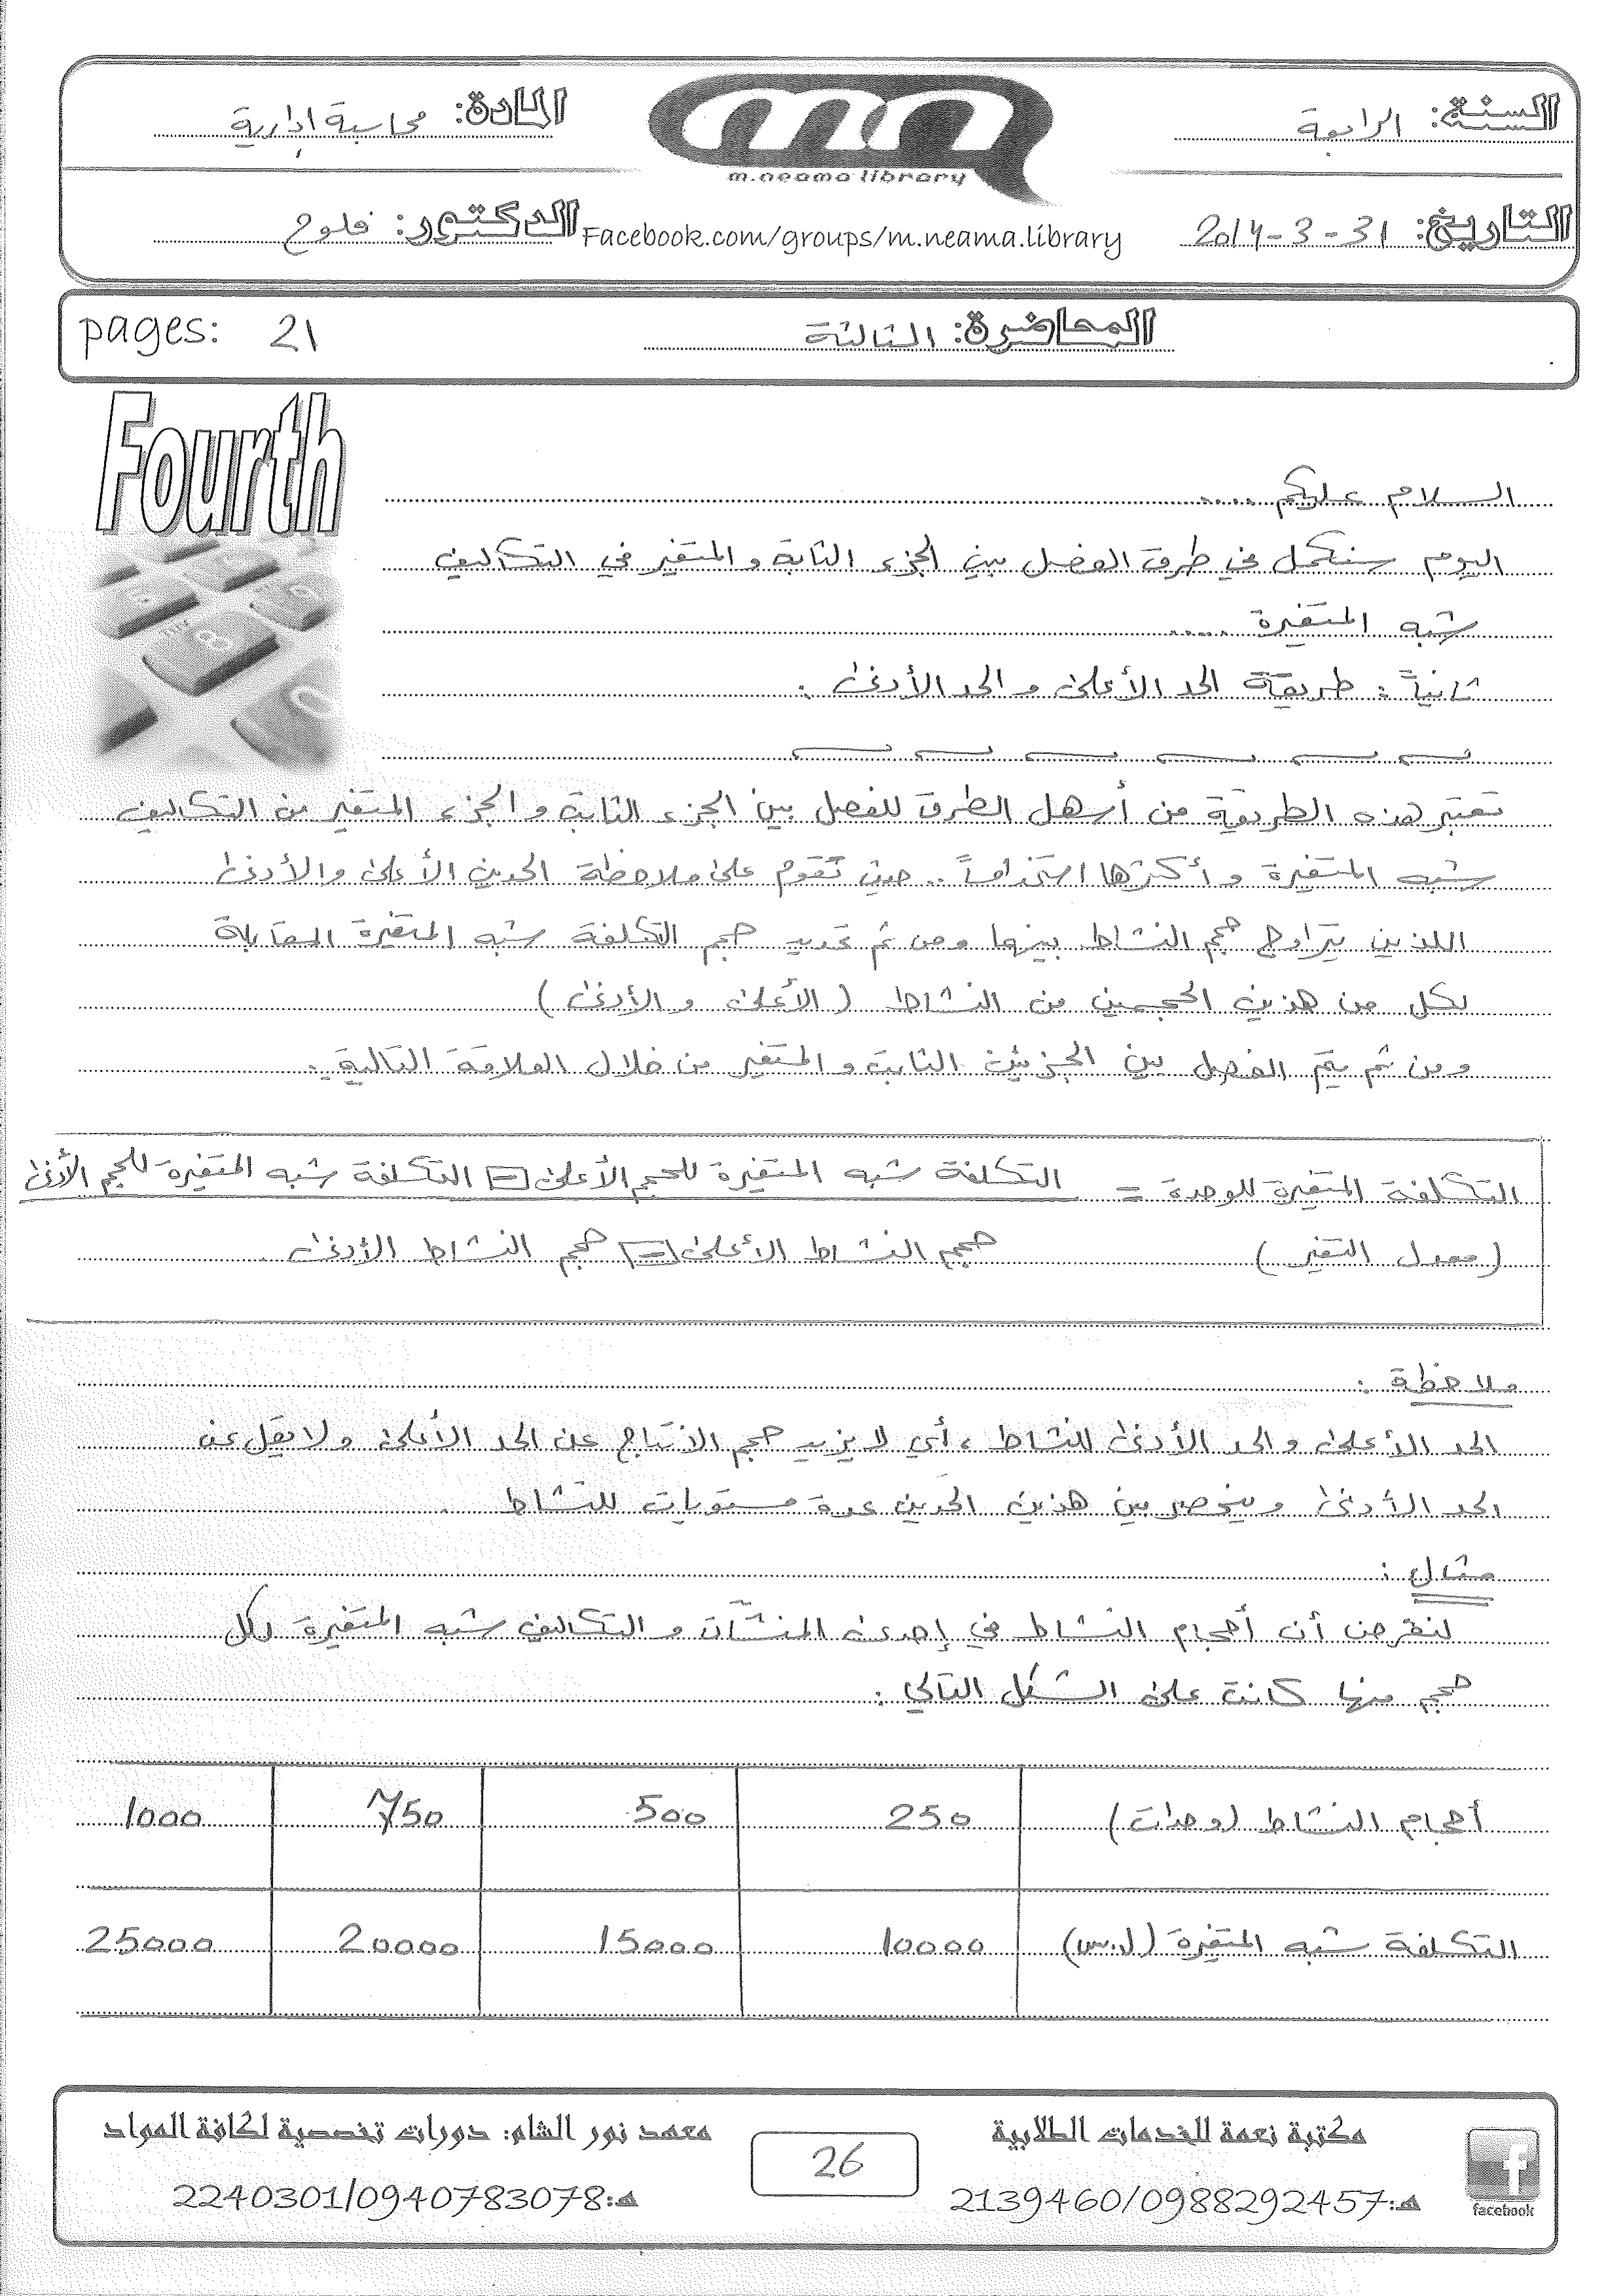 السنة: الرابعة
المادة: محاسبة إدارية
m.neama library
التاريخ: 31-3-2014
Facebook.com/groups/m.neama.library
الدكتور: فلوح
المحاضرة: الثالثة
pages: 21
Fourth
السلام عليكم ....
اليوم سنكمل في طرق الفصل بين الجزء الثابت والمتغير في التكاليف
شبه المتغيرة .....
ثانياً: طريقة الحد الأعلى والحد الأدنى:
تعتبر هذه الطريقة من أسهل الطرق للفصل بين الجزء الثابت والجزء المتغير من التكاليف
شبه المتغيرة وأكثرها استخداماً .. حيث تقوم على ملاحظة الحدين الأعلى والأدنى
اللذين يتراوح حجم النشاط بينهما ومن ثم تحديد حجم التكلفة شبه المتغيرة المقابلة
لكل من هذين الحجمين من النشاط (الأعلى والأدنى)
ومن ثم يتم الفصل بين الجزئين الثابت والمتغير من خلال العلاقة التالية:
التكلفة المتغيرة للوحدة = التكلفة شبه المتغيرة للحجم الأعلى - التكلفة شبه المتغيرة للحجم الأدنى
(معدل التغير) حجم النشاط الأعلى - حجم النشاط الأدنى
ملاحظة:
الحد الأعلى والحد الأدنى للنشاط، أي لا يزيد حجم الانتاج عن الحد الأعلى ولا يقل عن
الحد الأدنى وينحصر بين هذين الحدين عدة مستويات للنشاط
مثال:
لنفرض أن أحجام النشاط في إحدى المنشآت والتكاليف شبه المتغيرة لكل
حجم منها كانت على الشكل التالي:
أحجام النشاط (وحدات) 250 500 750 1000
التكلفة شبه المتغيرة (ل.س) 10000 15000 20000 25000
مكتبة نعمة للخدمات الطلابية
هـ: 2139460/0988292457
facebook
26
معهد نور الشام: دورات تخصصية لكافة المواد
هـ: 2240301/0940783078